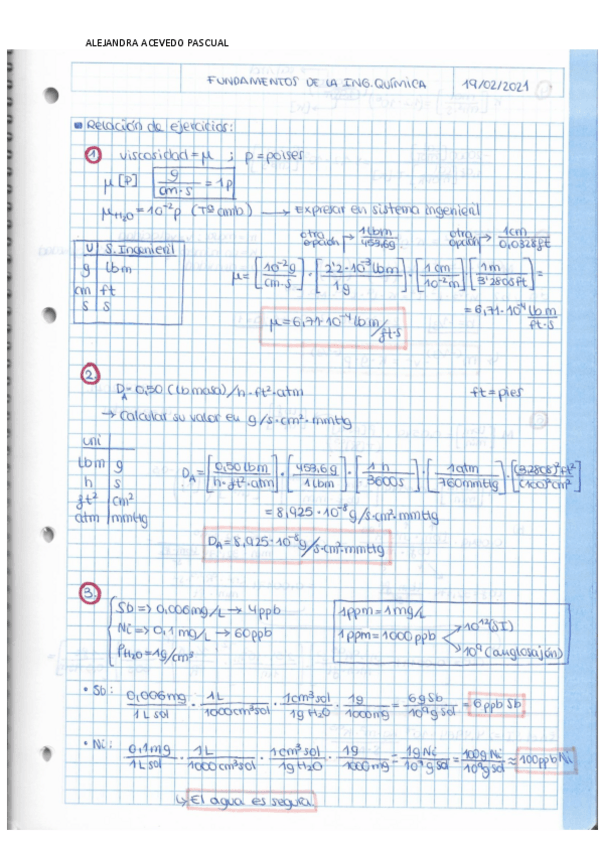 ALEJANDRA ACEVEDO PASCUAL
FUNDAMENTOS DE LA ING.QUÍMICA 19/02/2021
Relación de ejercicios:
1 viscosidad = μ ; p = poises
μ [P] g/cm·s = 1p
μH₂O = 10⁻²p (Tª amb) → expresar en sistema ingenieril
otra opción → 1lbm/453,6g otra opción → 1cm/0,0328ft
U S. Ingenieril
g lbm
cm ft
s s
μ = [10⁻²g/cm·s]·[2'2·10⁻³lbm/1g]·[1cm/10⁻²m]·[1m/3'2808ft] =
= 6,71·10⁻⁴ lbm/ft·s
μ = 6,71·10⁻⁴ lbm/ft·s
2. DA = 0,50 (lb masa)/h·ft²·atm ft = pies
→ calcular su valor en g/s·cm²·mmHg
uni
lbm g
h s
ft² cm²
atm mmHg
DA = [0,50 lbm/h·ft²·atm]·[453,6g/1lbm]·[1h/3600s]·[1atm/760mmHg]·[(3.2808)²ft²/(100)²cm²]
= 8,925·10⁻⁸ g/s·cm²·mmHg
DA = 8,925·10⁻⁸ g/s·cm²·mmHg
3. Sb => 0,006mg/L → 4ppb
Ni => 0,1mg/L → 60ppb
ρH₂O = 1g/cm³
1ppm = 1mg/L
1ppm = 1000ppb
10¹² (SI)
10⁹ (anglosajón)
• Sb: 0,006mg/1L sol · 1L/1000cm³sol · 1cm³sol/1g H₂O · 1g/1000mg = 6g Sb/10⁹g sol = 6ppb Sb
• Ni: 0,1mg/1L sol · 1L/1000cm³sol · 1cm³sol/1g H₂O · 1g/1000mg = 1g Ni/10⁷g sol = 100g Ni/10⁹g sol ≈ 100ppb Ni
↳ El agua es segura